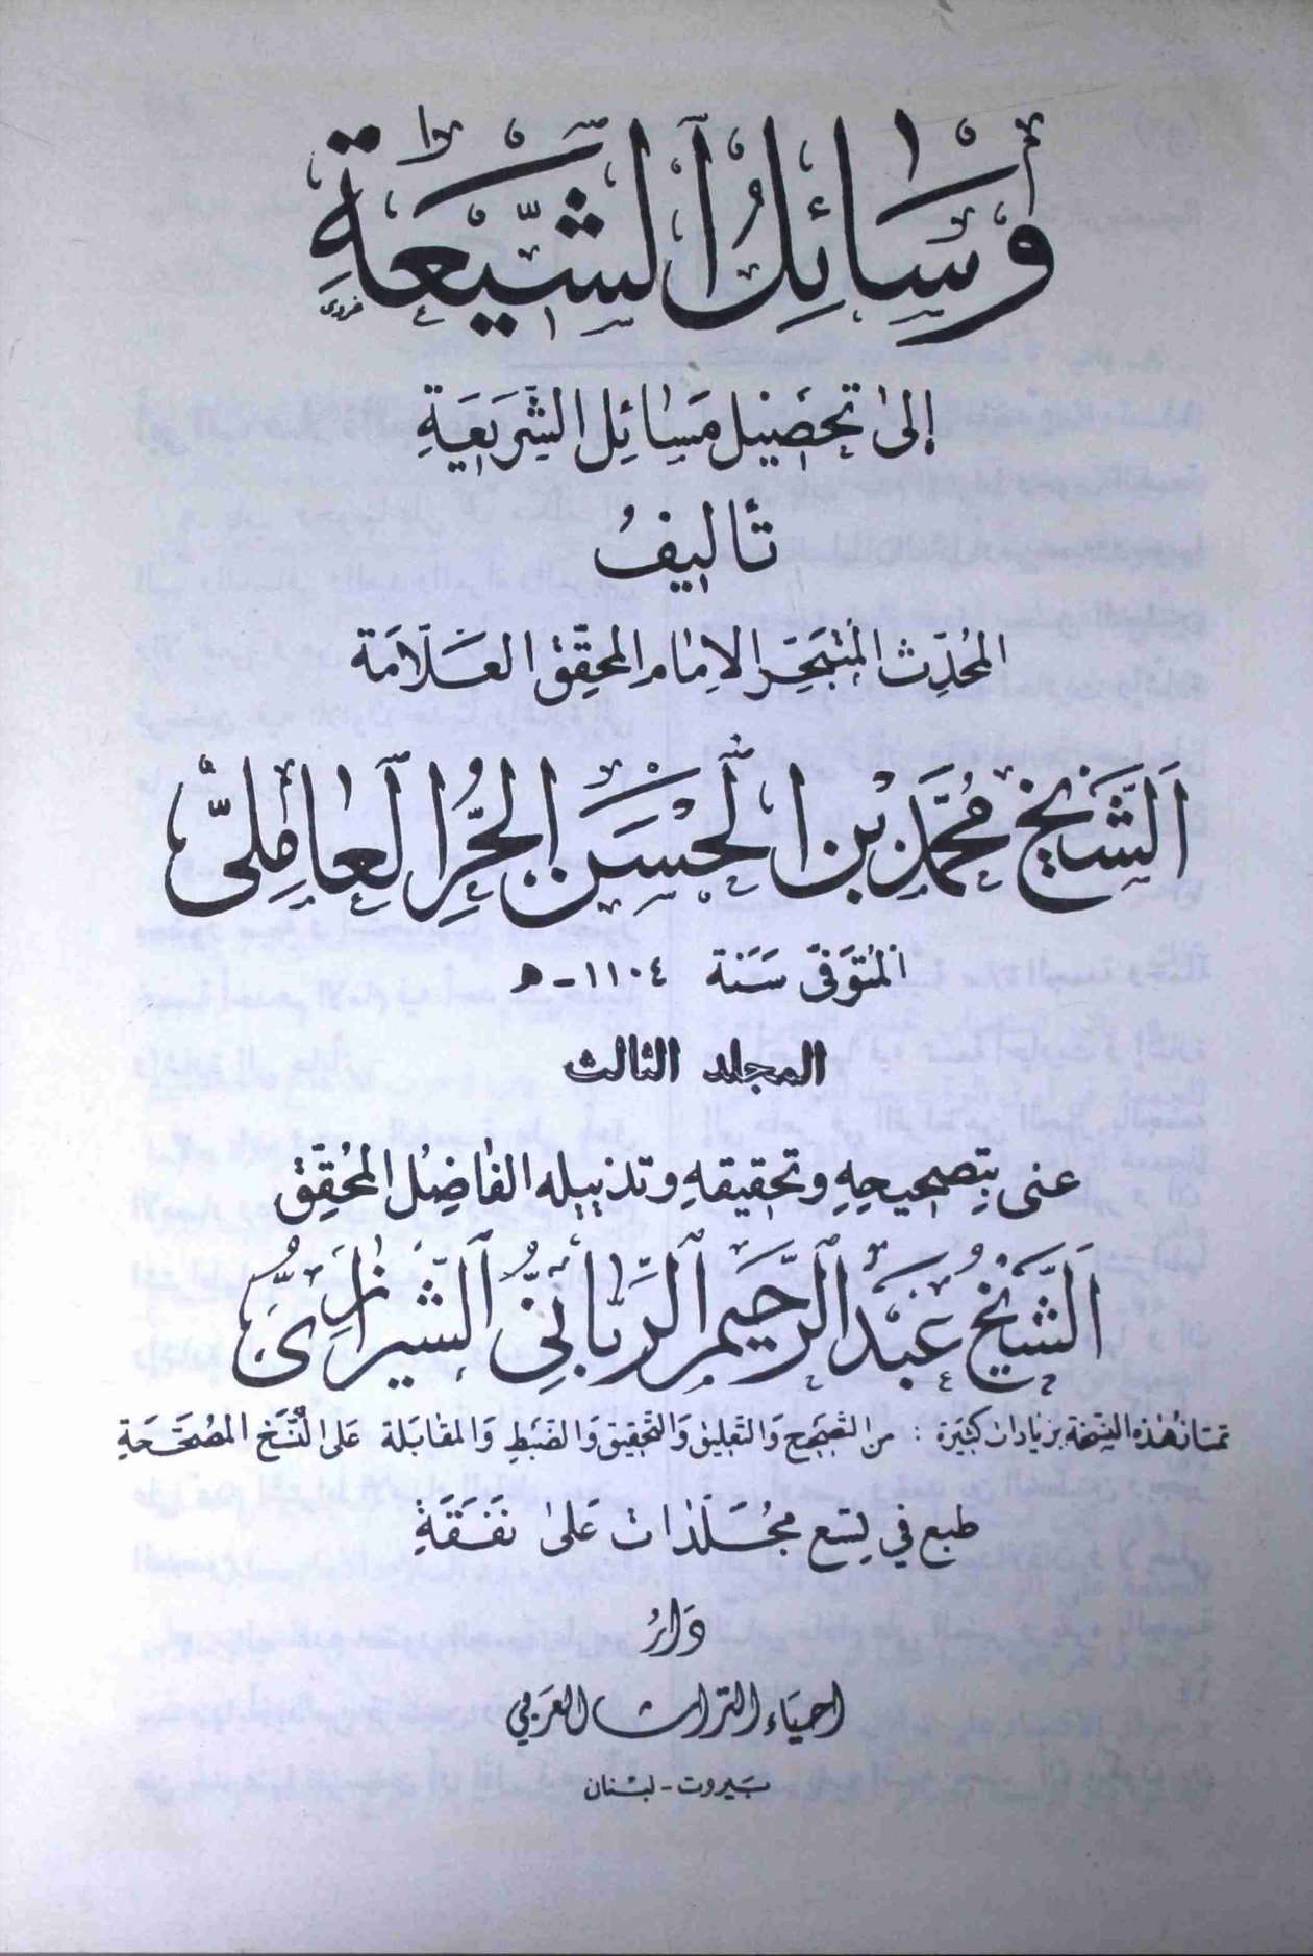 وَسَائِلُ الشِّيعَةِ
إلىٰ تحصَيل مَسَائِل الشَّريعَةِ
تأليفُ
المحُدّث المتبَحّر الإمام المحقِّق العَلاّمَة
الشَّيْخ مُحمَّد بْن الحَسَن الحُرّ العَامِليّ
المتوَفىّ سَنة ١١٠٤ - هـ
المجلد الثالث
عنى بتصحيحِهِ وتحقيقهِ وتذييله الفَاضِل المحُقِّق
الشَّيْخ عَبْد الرَّحيم الرَّبَّاني الشّيرَازيُّ
تمتاز هٰذه النسخة بزيادات كبيَرة : من التصحيح وَالتعليق وَالتحقيق وَالضبط وَالمقابَلة عَلى النُّسَخ المصَحَّحَةِ
طبع في تِسَع مجُلّدات عَلىٰ نفَقَةِ
دَارُ
احيَاء التراث العَربي
بَيروت - لبْنان